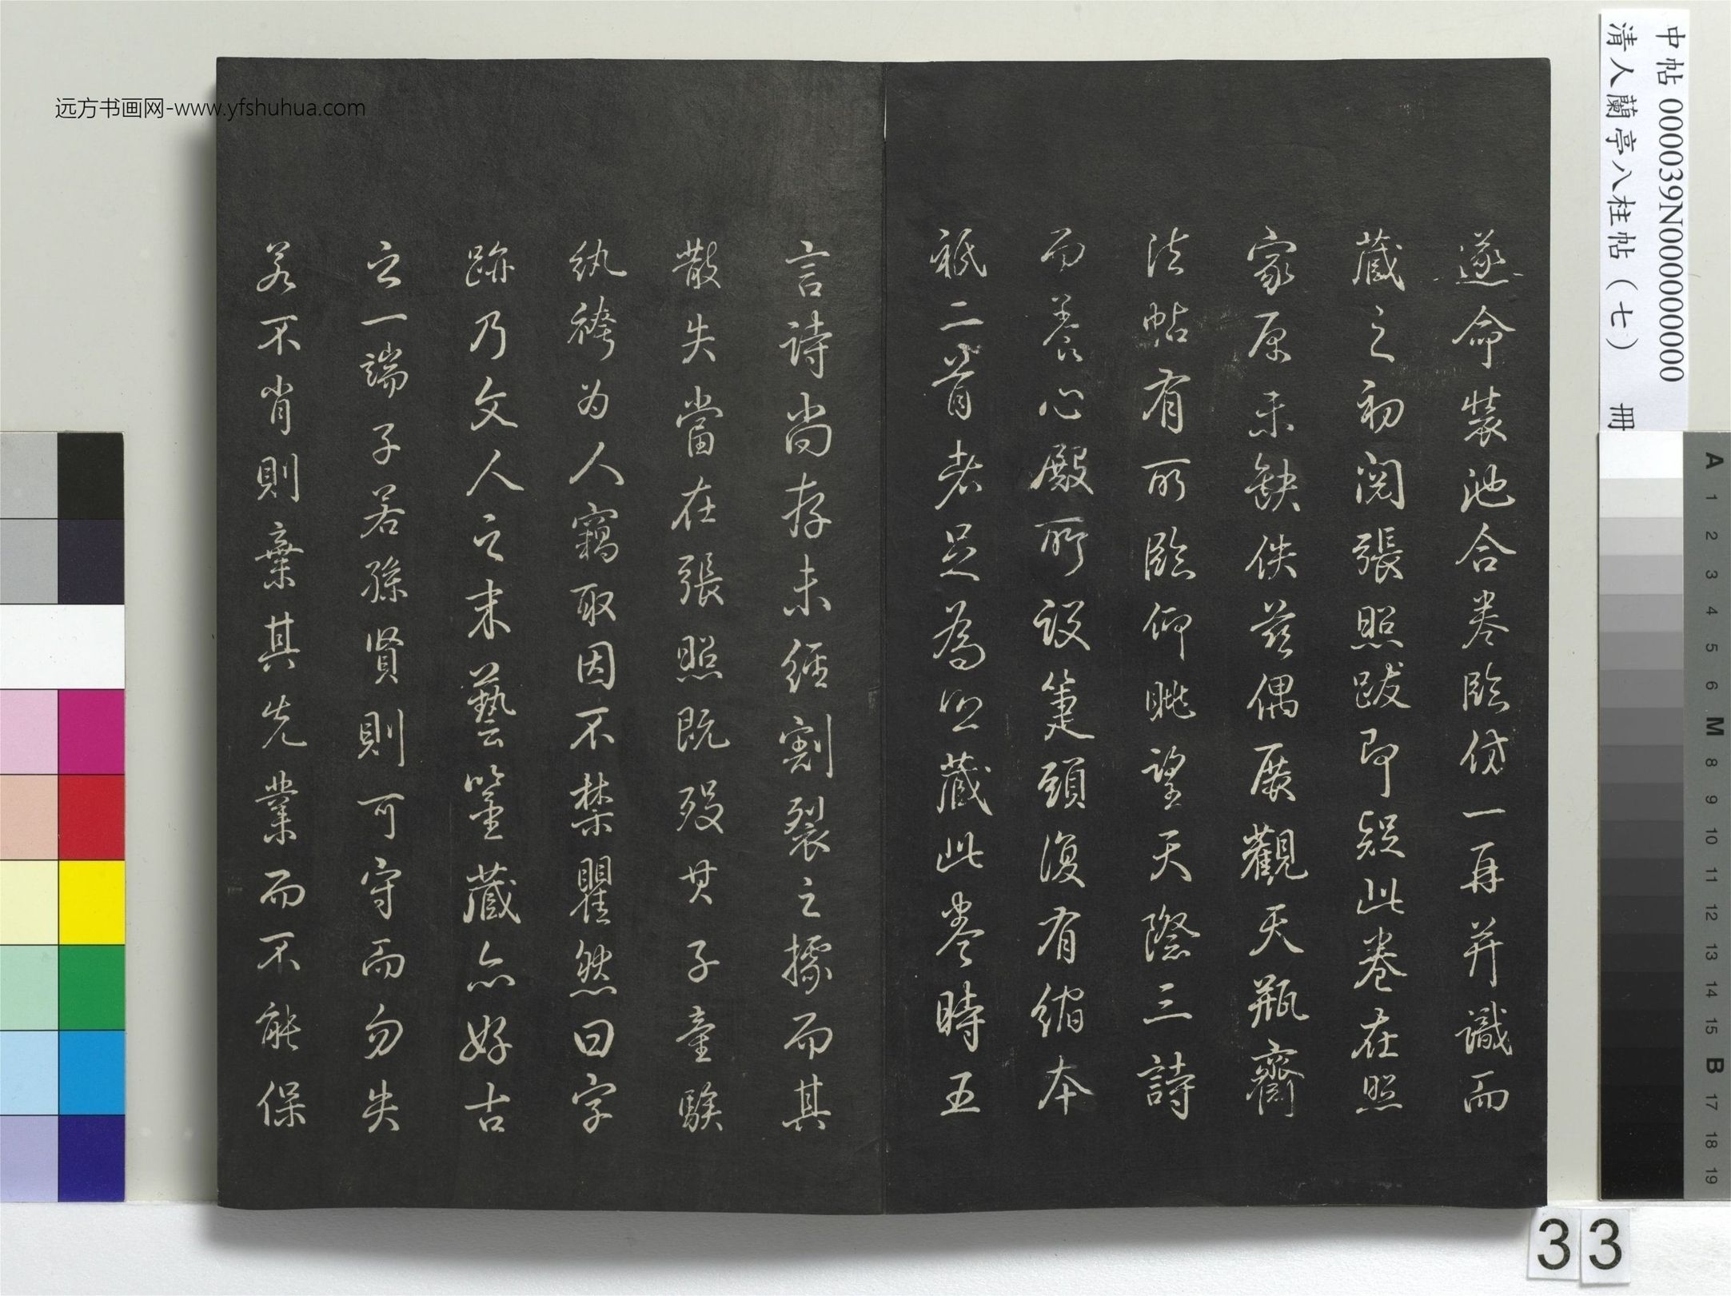 远方书画网-www.yfshuhua.com
中帖 000039N000000000
清人蘭亭八柱帖（七） 冊
遂命裝池合卷臨一再并識而
藏之初閱張照跋即疑此卷在照
家原未缺佚茲偶展觀天瓶齋
法帖有所臨仰眺望天際三詩
而養心殿所設箑頭復有縮本
祇二首者足為照藏此卷時五
言詩尚存未經割裂之據而其
散失當在張照既歿其子童騃
紈袴为人竊取因不禁瞿然曰字
跡乃文人之末藝鑒藏亦好古
之一端子若孫賢則可守而勿失
若不肖則棄其先業而不能保
A 1 2 3 4 5 6 M 8 9 10 11 12 13 14 15 B 17 18 19
33